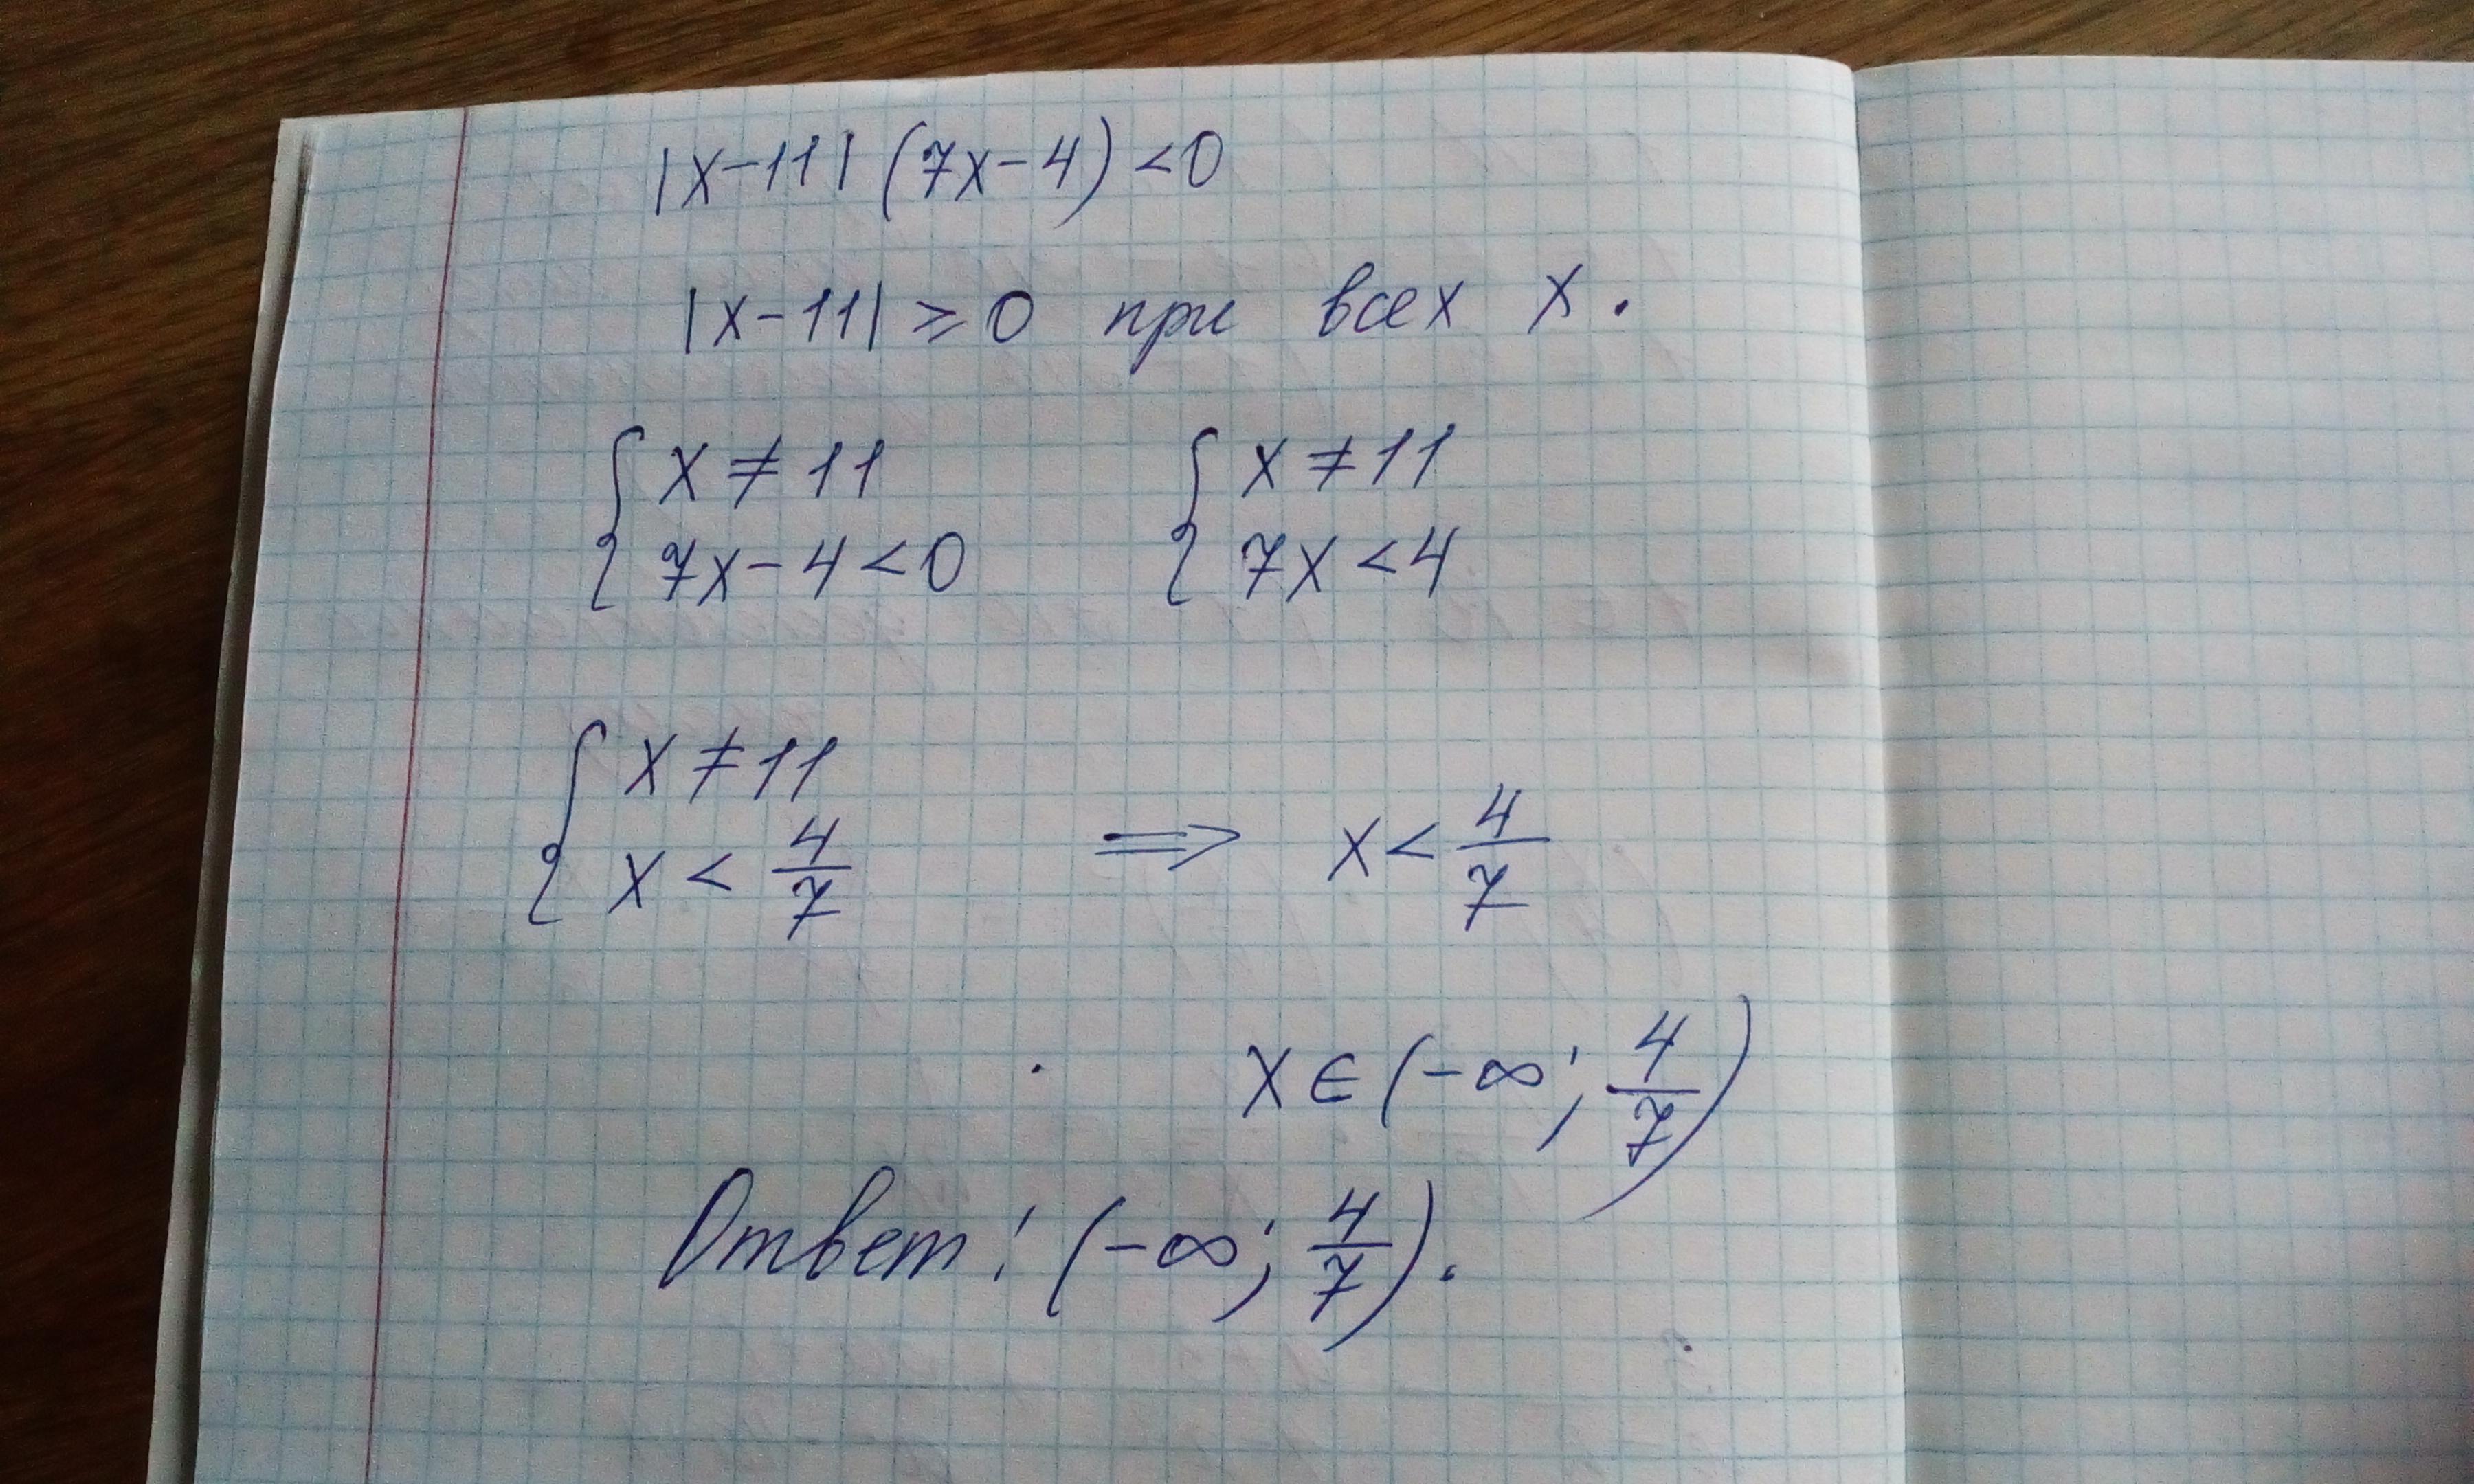 |x-11| (7x-4) <0
|x-11| ⩾ 0 при всех x.
{ x ≠ 11 { x ≠ 11
7x-4 <0 7x <4
{ x ≠ 11
x < 4/7 ⟹ x < 4/7
x ∈ (-∞; 4/7)
Ответ: (-∞; 4/7).